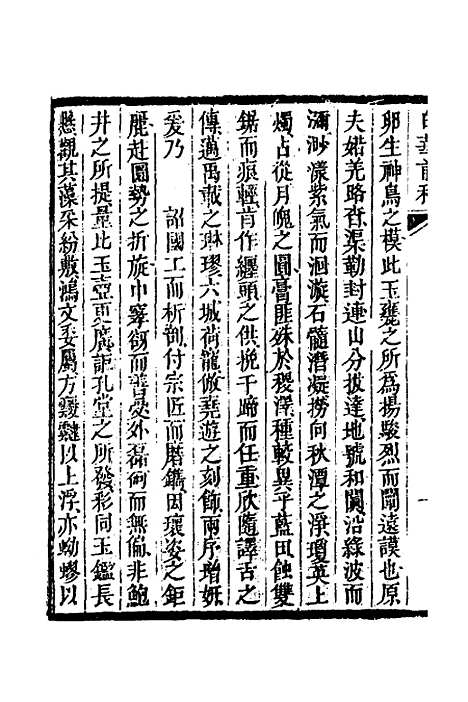 白華前稿
卵生神鳥之模此玉甕之所為揚駿烈而闡遠謨也原
夫婼羌路杳渠勒封連山分拔達地號和闐沿綠波而
瀰渺漾紫氣而洄漩石髓潛凝撈向秋潭之淨瓊英上
燭占從月魄之圓嘗匪殊於稷澤種較異乎藍田蝕雙
鋸而痕輕肯作纏頭之供挽千蹄而任重欣隨譯舌之
傳邁禹載之琳璆六城荷龍倣堯遊之刻飾兩序增妍
爰乃 詔國工而析剖付宗匠而磨鐫因瓌姿之鉅
麗赴圜勢之折旋中窾刱而善受外磊砢而無偏非鮑
井之所提量此玉壺更廣詎孔堂之所發彩同玉鑑長
懸觀其藻采紛敷鴻文委屬方靉靆以上浮亦蚴蟉以